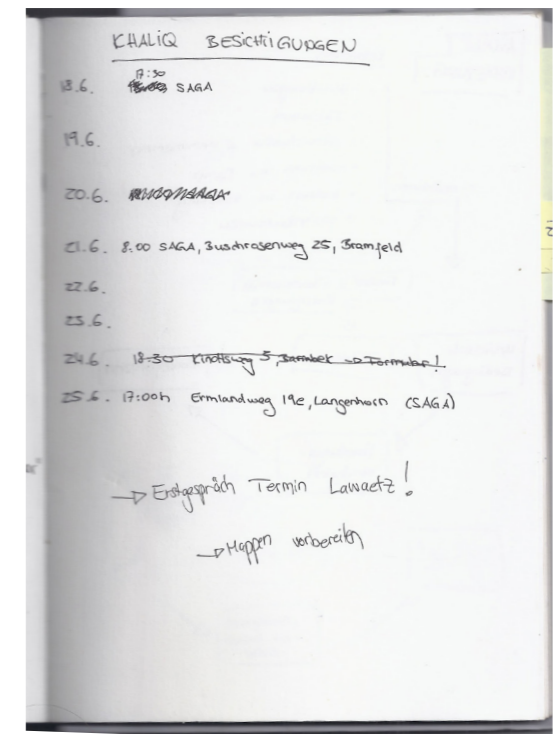 KHALIQ BESICHTIGUNGEN
17:30
18.6. SAGA
19.6.
20.6.
21.6. 8:00 SAGA, Buschrosenweg 25, Bramfeld
22.6.
23.6.
24.6. 18:30 5, Barmbek → Formular!
25.6. 17:00h Ermlandweg 19e, Langenhorn (SAGA)
→ Erstgespräch Termin Lawaetz!
→ Mappen vorbereiten